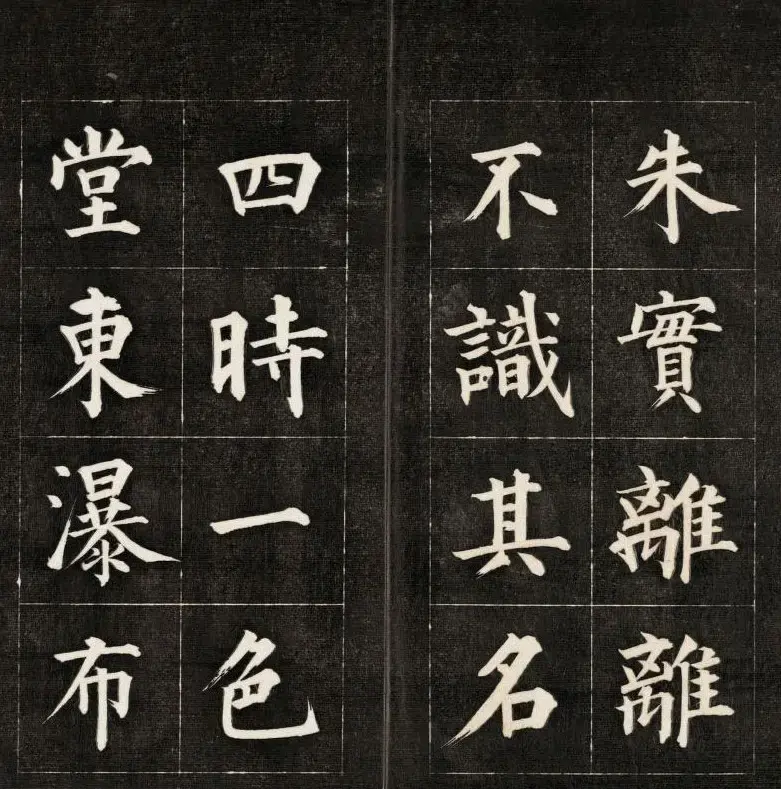 朱實離離
不識其名
四時一色
堂東瀑布